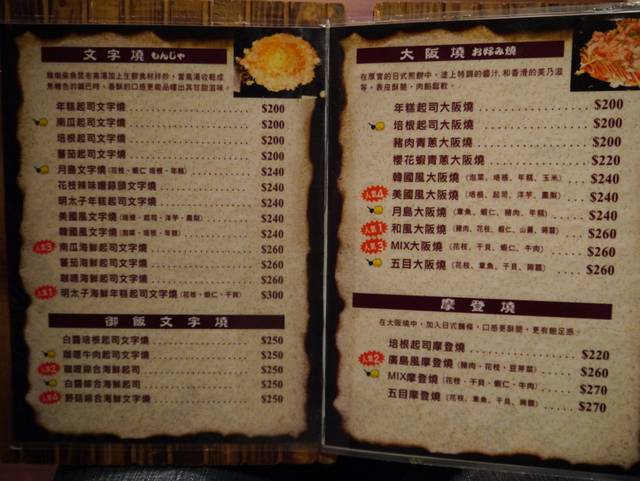 文字燒 もんじゃ
年糕起司文字燒 $200
南瓜起司文字燒 $200
培根起司文字燒 $200
蕃茄起司文字燒 $200
月島文字燒 (花枝、蝦仁 培根、年糕) $240
花枝辣味鱈蒜頭文字燒 $240
明太子年糕起司文字燒 $240
美國風文字燒 (培根、起司、洋芋、鳳梨) $240
韓國風文字燒 (泡菜、培根、年糕) $240
人氣3 南瓜海鮮起司文字燒 $260
蕃茄海鮮起司文字燒 $260
咖哩海鮮起司文字燒 $260
人氣1 明太子海鮮年糕起司文字燒 (花枝、蝦仁、干貝) $300
御飯文字燒
白醬培根起司文字燒 $250
咖哩牛肉起司文字燒 $250
人氣2 咖哩綜合海鮮起司 $250
白醬綜合海鮮起司 $250
人氣4 野菇綜合海鮮文字燒 $250
大阪燒 お好み燒
在厚實的日式煎餅中，塗上特調的醬汁,和香滑的美乃滋
等，表皮酥脆，肉餡鬆軟。
年糕起司大阪燒 $200
培根起司大阪燒 $200
豬肉青蔥大阪燒 $200
櫻花蝦青蔥大阪燒 $220
韓國風大阪燒 (泡菜、培根、年糕、玉米) $240
人氣4 美國風大阪燒 (培根、起司、洋芋、鳳梨) $240
月島大阪燒 (章魚、蝦仁、豬肉、年糕) $240
人氣1 和風大阪燒 (豬肉、花枝、蝦仁、山藥、蒟蒻) $260
人氣3 MIX大阪燒 (花枝、干貝、蝦仁、牛肉) $260
五目大阪燒 (花枝、章魚、干貝、蒟蒻) $260
摩登燒
在大阪燒中，加入日式麵條，口感更酥脆，更有飽足感。
培根起司摩登燒 $220
人氣2 廣島風摩登燒 (豬肉、花枝、豆芽菜) $260
MIX摩登燒 (花枝、干貝、蝦仁、牛肉) $270
五目摩登燒 (花枝、章魚、干貝、蒟蒻) $270